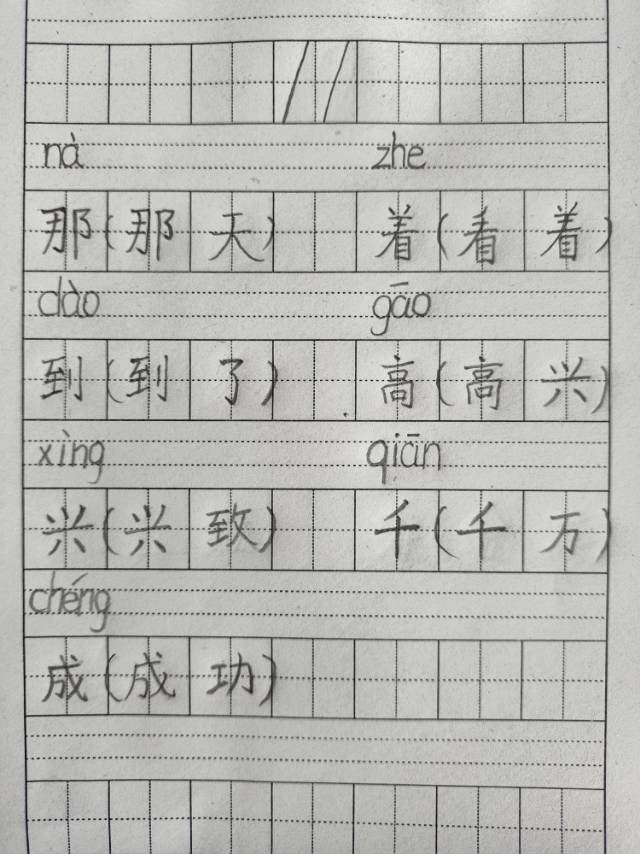 11
nà zhe
那(那天) 着(看着)
dào gāo
到(到了) 高(高兴)
xìng qiān
兴(兴致) 千(千万)
chéng
成(成功)